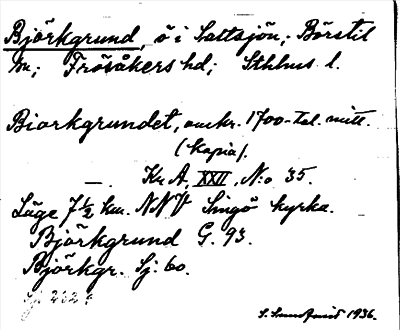 Björkgrund, ö i Saltsjön; Börstil
sn; Frösåkers hd; Sthlms l.
Biorkgrundet, omkr. 1700-tal. mitt.
(Kopia).
—. Kr A, XXII, N:o 35.
Läge 7½ km. NNV Singö kyrka.
Björkgrund G. 93.
Björkgr. Sj: 60.
1936.